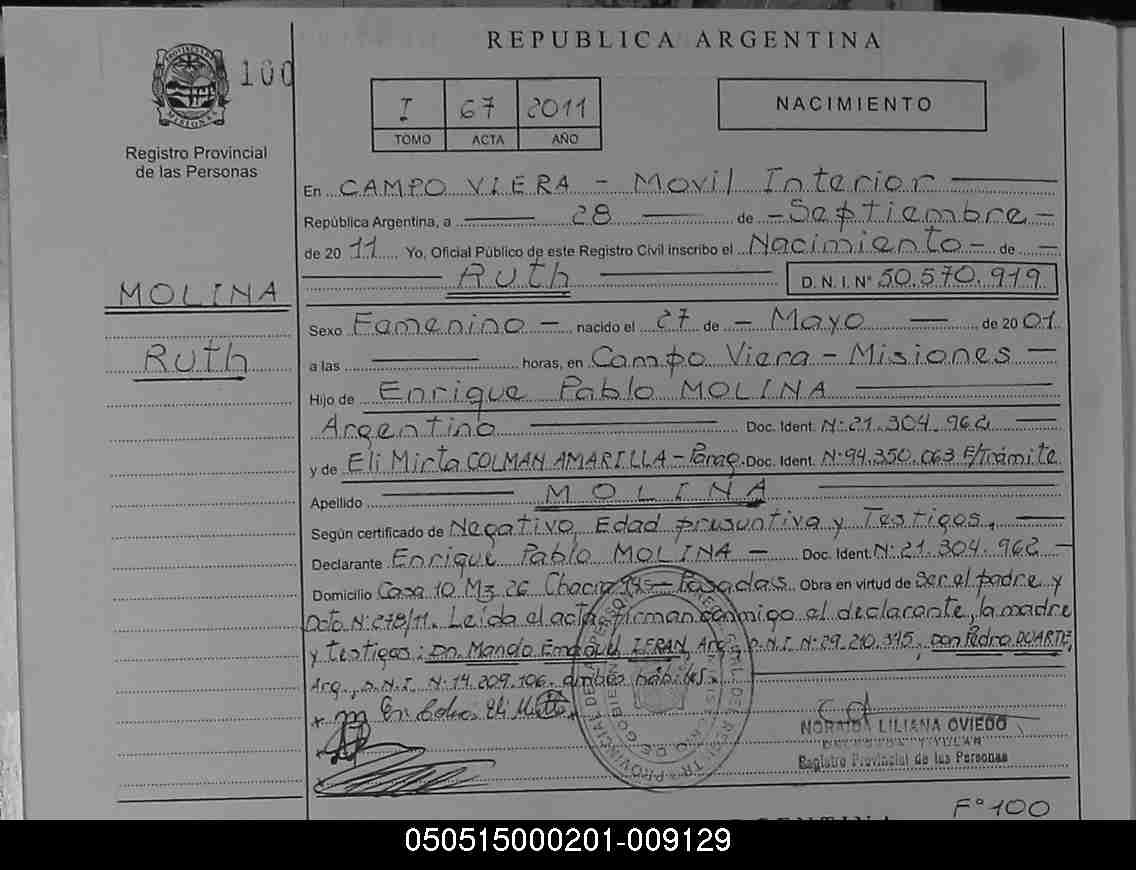 REPUBLICA ARGENTINA
PROVINCIA DE MISIONES
100
I 67 2011
TOMO ACTA AÑO
NACIMIENTO
Registro Provincial
de las Personas
En CAMPO VIERA - Movil Interior
República Argentina, a 28 de - Septiembre -
de 2011 Yo, Oficial Público de este Registro Civil inscribo el Nacimiento - de -
Ruth D.N.I. Nº 50.570.919
MOLINA
Ruth
Sexo Femenino - nacido el 27 de - Mayo de 2001
a las horas, en Campo Viera - Misiones
Hijo de Enrique Pablo MOLINA
Argentino Doc. Ident. Nº 21.304.962
y de Eli Mirta COLMAN AMARILLA - Parag. Doc. Ident. Nº 94.350.063 E/Trámite
Apellido MOLINA
Según certificado de Negativo, Edad presuntiva y Testigos.
Declarante Enrique Pablo MOLINA - Doc. Ident. Nº 21.304.962 -
Domicilio Casa 10 Mz 26 Chacra - Posadas. Obra en virtud de Ser el padre y
Dcto Nº 278/11. Leída el acta, firman conmigo el declarante, la madre
y testigos: Dn. IFRAN, Arg., D.N.I Nº 29.210.345, Don Pedro DUARTE,
Arg., D.N.I Nº 14.209.106. ambos hábiles.
NORAIDA LILIANA OVIEDO
Registro Provincial de las Personas
Fº 100
050515000201-009129